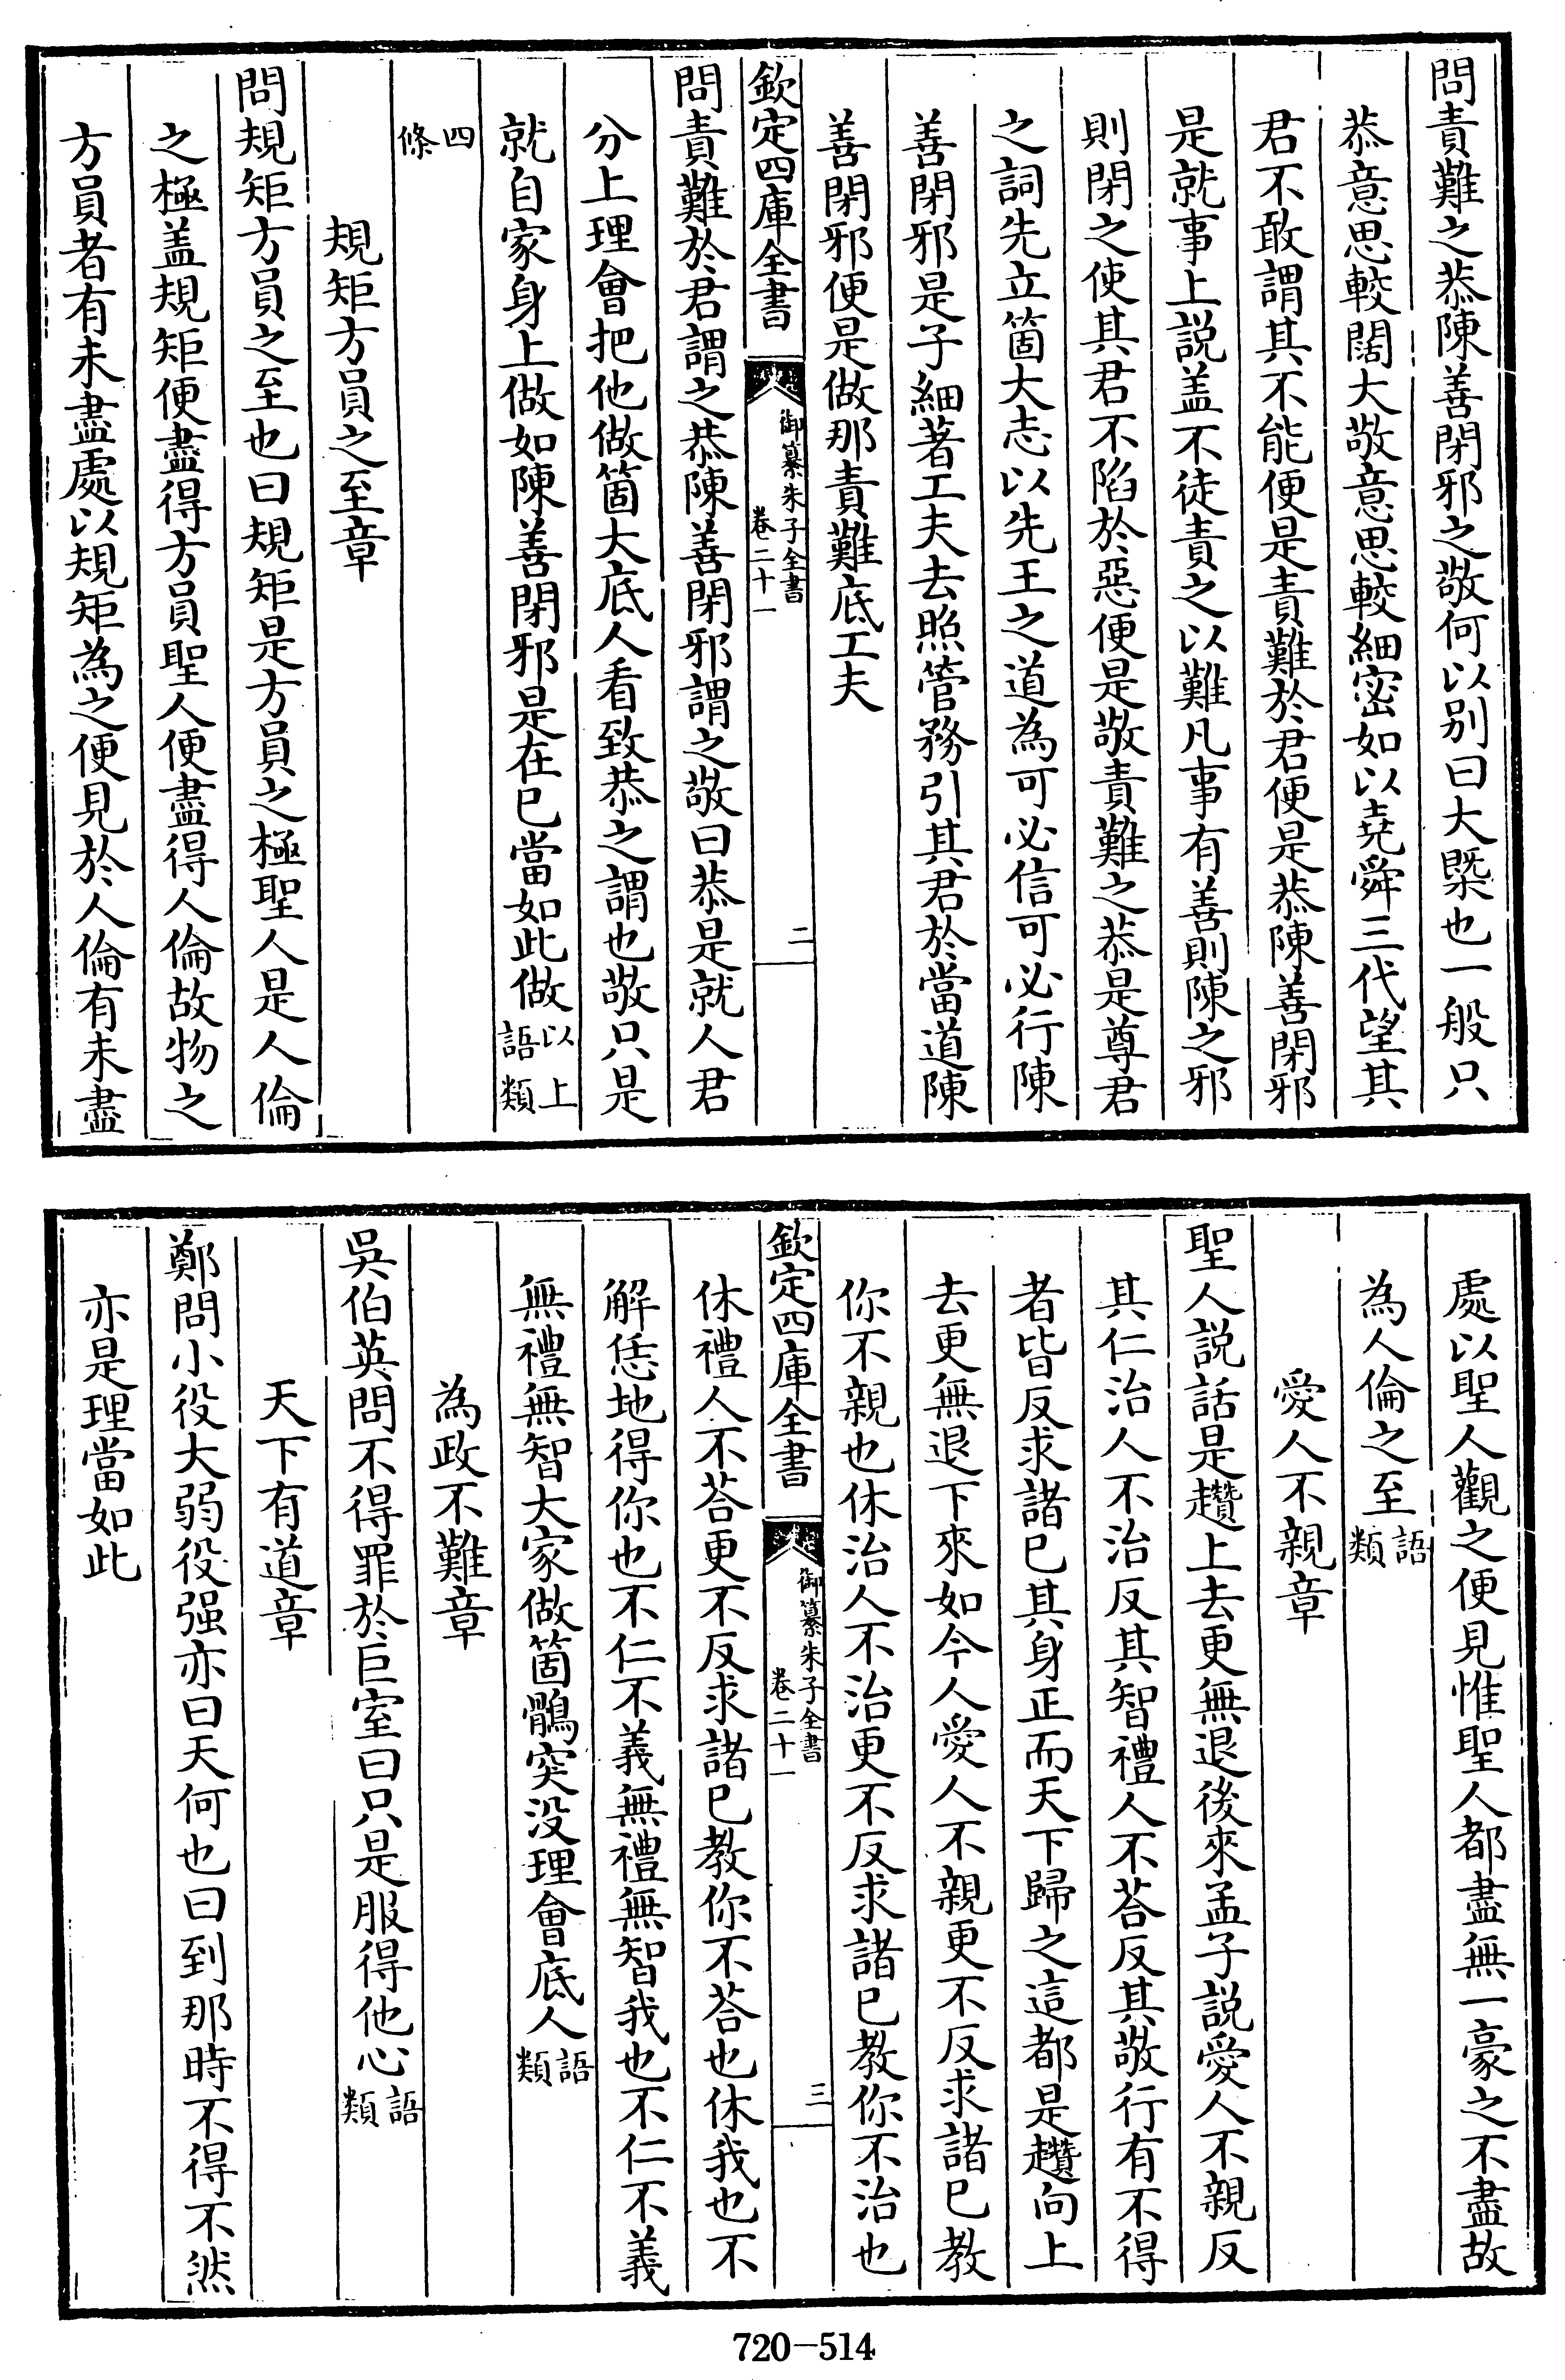 問責難之恭陳善閉邪之敬何以别曰大槩也一般只
恭意思較闊大敬意思較細密如以堯舜三代望其
君不敢謂其不能便是責難於君便是恭陳善閉邪
是就事上説盖不徒責之以難凡事有善則陳之邪
則閉之使其君不陷於惡便是敬責難之恭是尊君
之詞先立箇大志以先王之道為可必信可必行陳
善閉邪是子細著工夫去照管務引其君於當道陳
善閉邪便是做那責難底工夫
欽定四庫全書
御纂朱子全書
卷二十一
二
問責難於君謂之恭陳善閉邪謂之敬曰恭是就人君
分上理會把他做箇大底人看致恭之謂也敬只是
就自家身上做如陳善閉邪是在已當如此做以上語類
四條
規矩方員之至章
問規矩方員之至也曰規矩是方員之極聖人是人倫
之極盖規矩便盡得方員聖人便盡得人倫故物之
方員者有未盡處以規矩為之便見於人倫有未盡
處以聖人觀之便見惟聖人都盡無一豪之不盡故
為人倫之至語類
愛人不親章
聖人説話是趲上去更無退後來孟子説愛人不親反
其仁治人不治反其智禮人不荅反其敬行有不得
者皆反求諸已其身正而天下歸之這都是趲向上
去更無退下來如今人愛人不親更不反求諸已教
你不親也休治人不治更不反求諸已教你不治也
欽定四庫全書
御纂朱子全書
卷二十一
三
休禮人不荅更不反求諸已教你不荅也休我也不
解恁地得你也不仁不義無禮無智我也不仁不義
無禮無智大家做箇鶻突没理會底人語類
為政不難章
吳伯英問不得罪於巨室曰只是服得他心語類
天下有道章
鄭問小役大弱役强亦曰天何也曰到那時不得不然
亦是理當如此
720-514